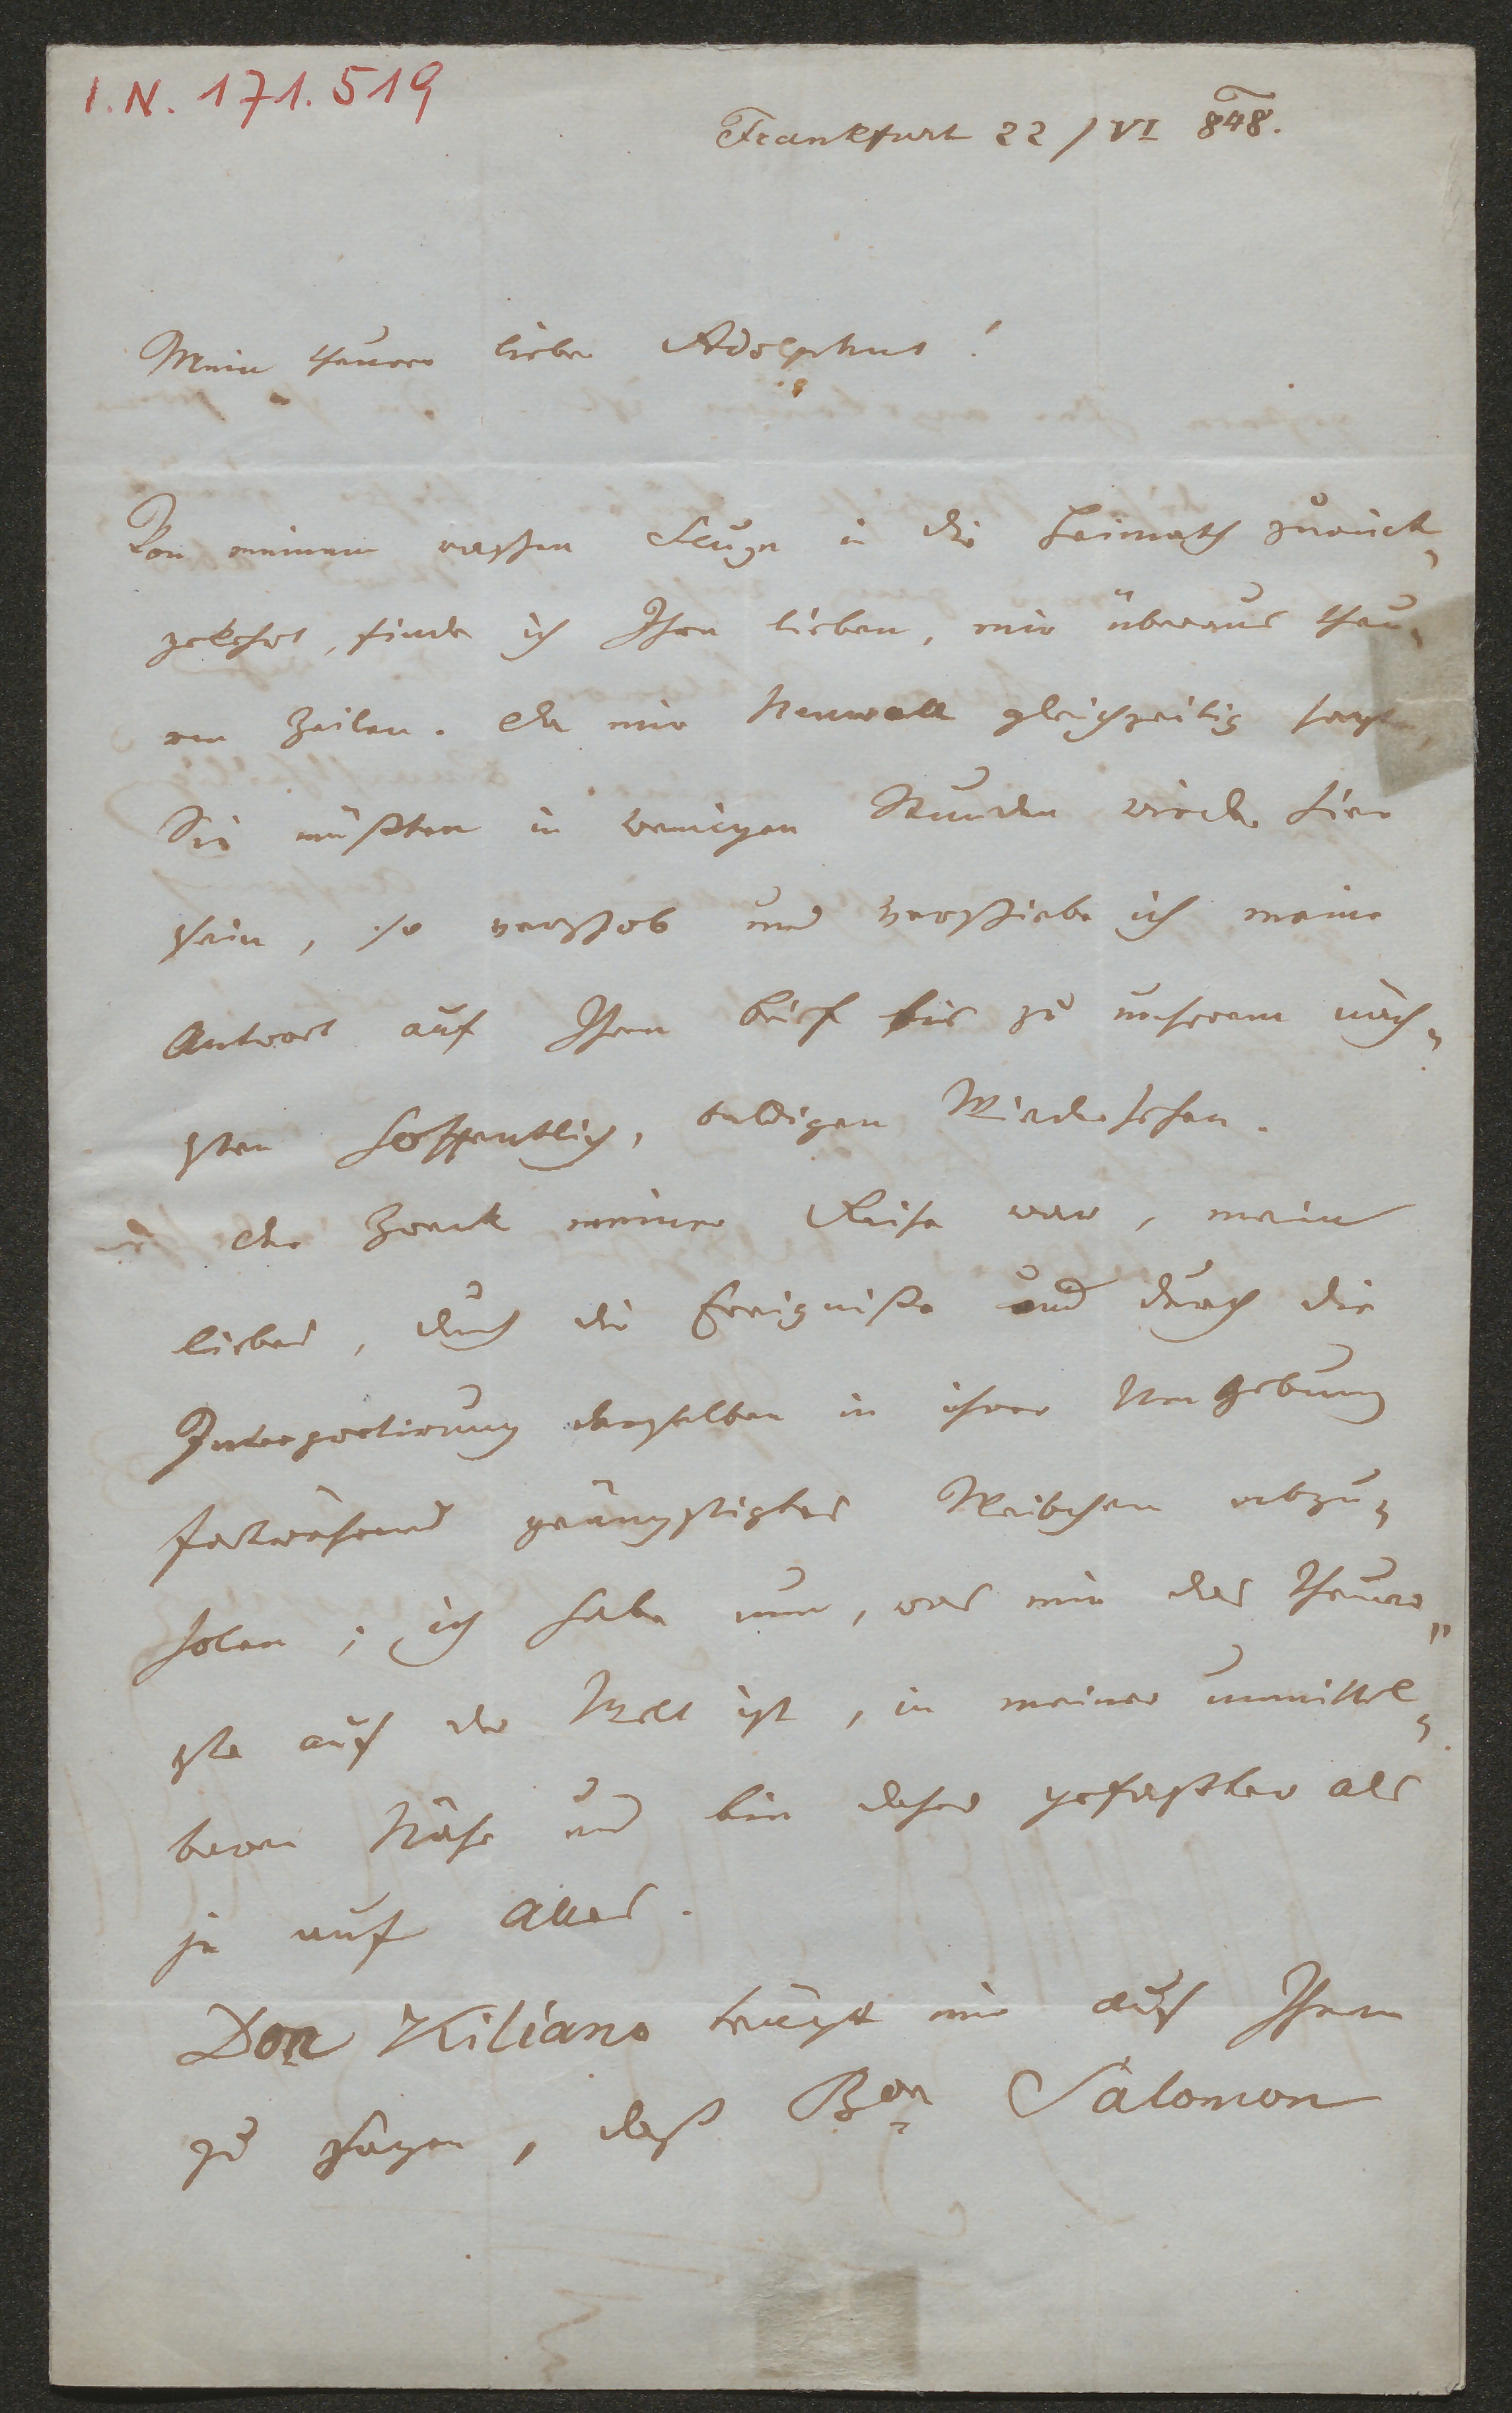 I.N. 171.519
Frankfurt 22/VI 848.
Mein theurer lieber Adolphus!
Von meinem raschen Fluge in die Heimath zurück-
gekehrt, finde ich Ihre lieben, mir überaus theu-
ren Zeilen. Da mir Neuwall gleichzeitig sagte,
Sie müßten in wenigen Stunden wieder hier
sein, so verschob und verschiebe ich meine
Antwort auf Ihren Brief bis zu unserem näch-
sten hoffentlich, baldigen Wiedersehen.
Der Zweck meiner Reise war, mein
liebes, durch die Ereigniße und durch die
Interpretirung derselben in ihrer Umgebung
fortwährend geängstigtes Weibchen abzu-
holen; ich habe nun, was mir das Theuer-
ste auf der Welt ist, in meiner unmittel-
baren Nähe und bin daher gefaßter als
je auf Alles.
Don Kiliano trägt mir auf Ihnen
zu sagen, daß Bon Salomon